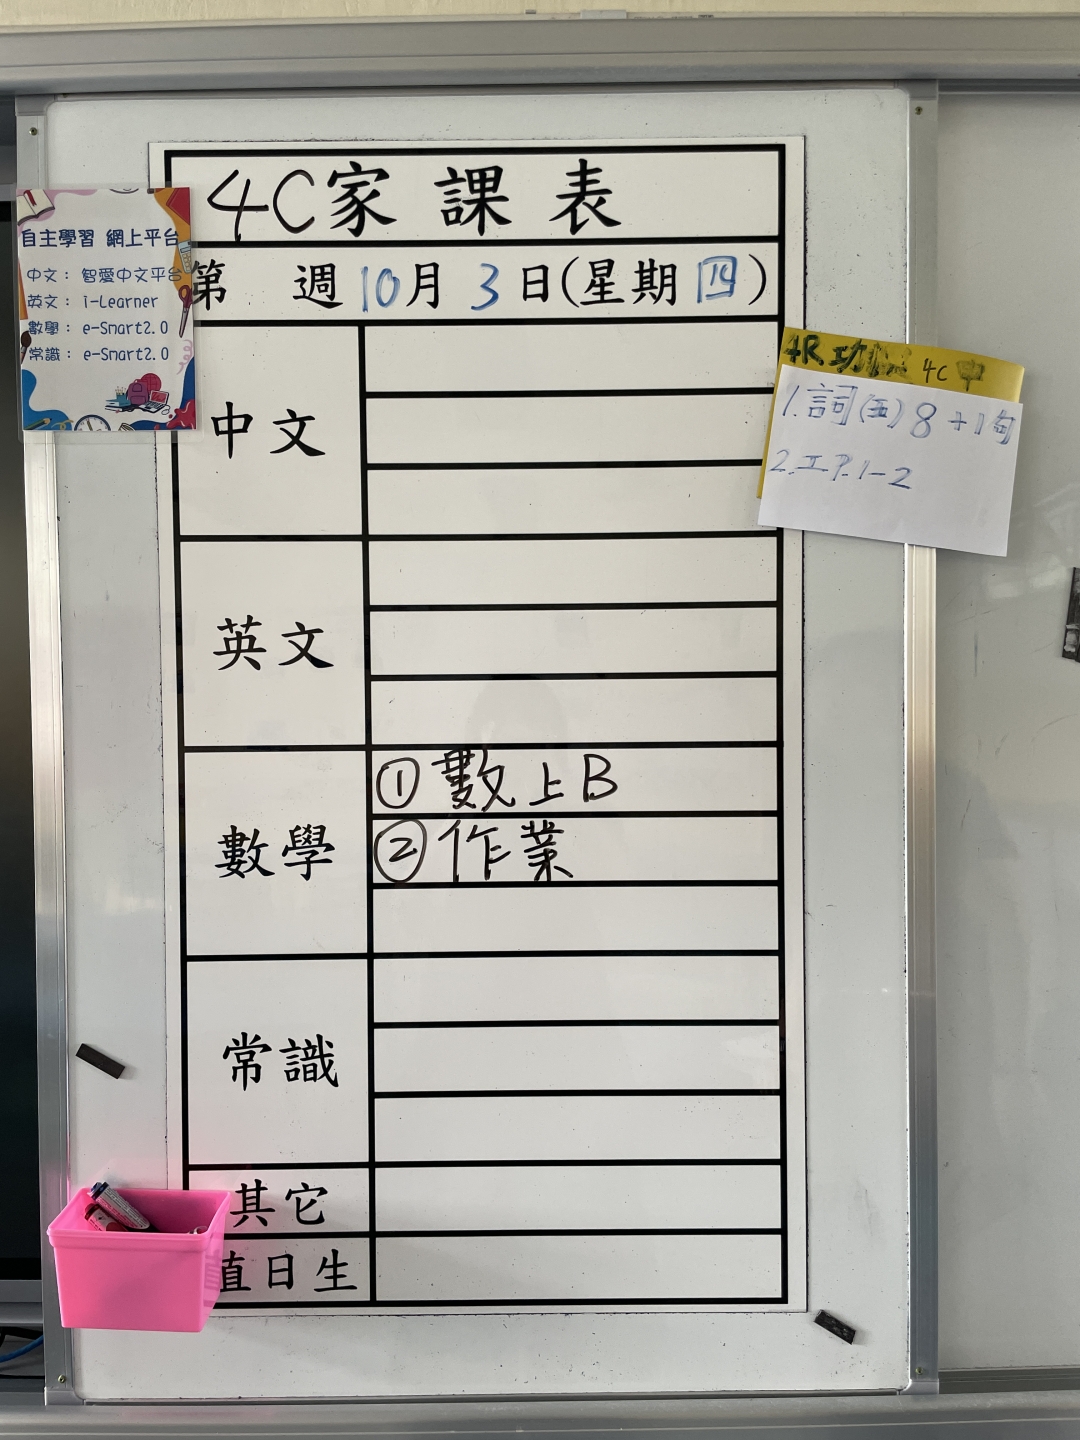 4C家課表
第 週10月3日(星期四)
自主學習 網上平台
中文：智愛中文平台
英文：i-Learner
數學：e-Smart2.0
常識：e-Smart2.0
4R功 4C中
1.詞(五)8+1句
2.工P.1-2
中文
英文
數學
①數上B
②作業
常識
其它
值日生